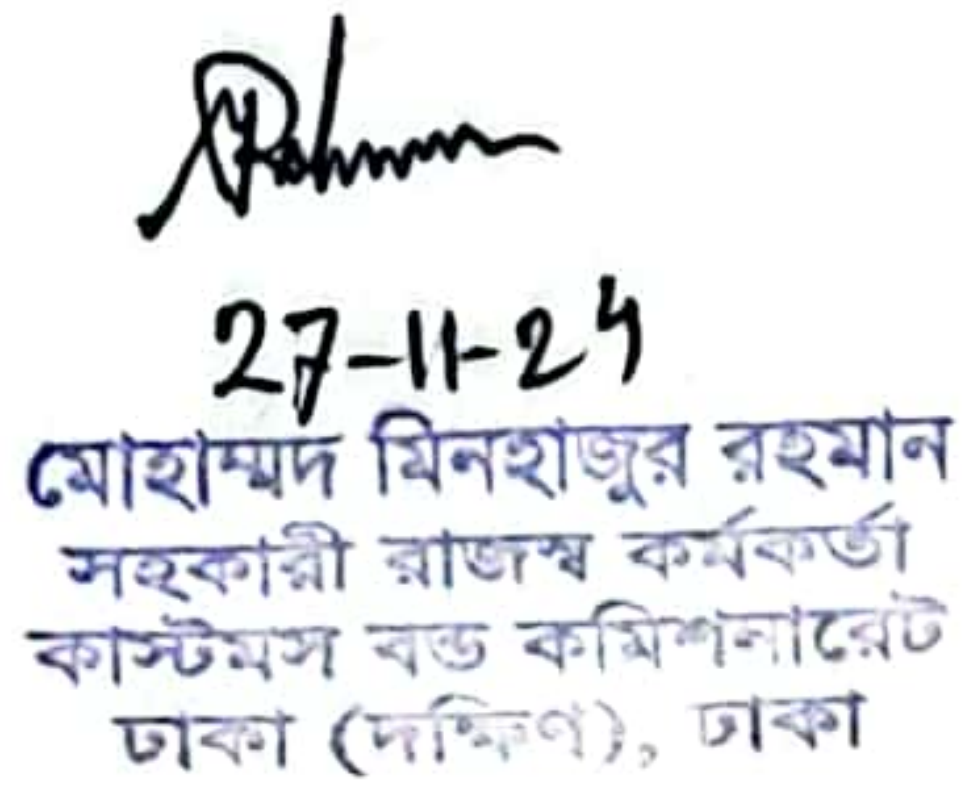 Rahman
27-11-24
মোহাম্মদ মিনহাজুর রহমান
সহকারী রাজস্ব কর্মকর্তা
কাস্টমস বন্ড কমিশনারেট
ঢাকা (দক্ষিণ), ঢাকা